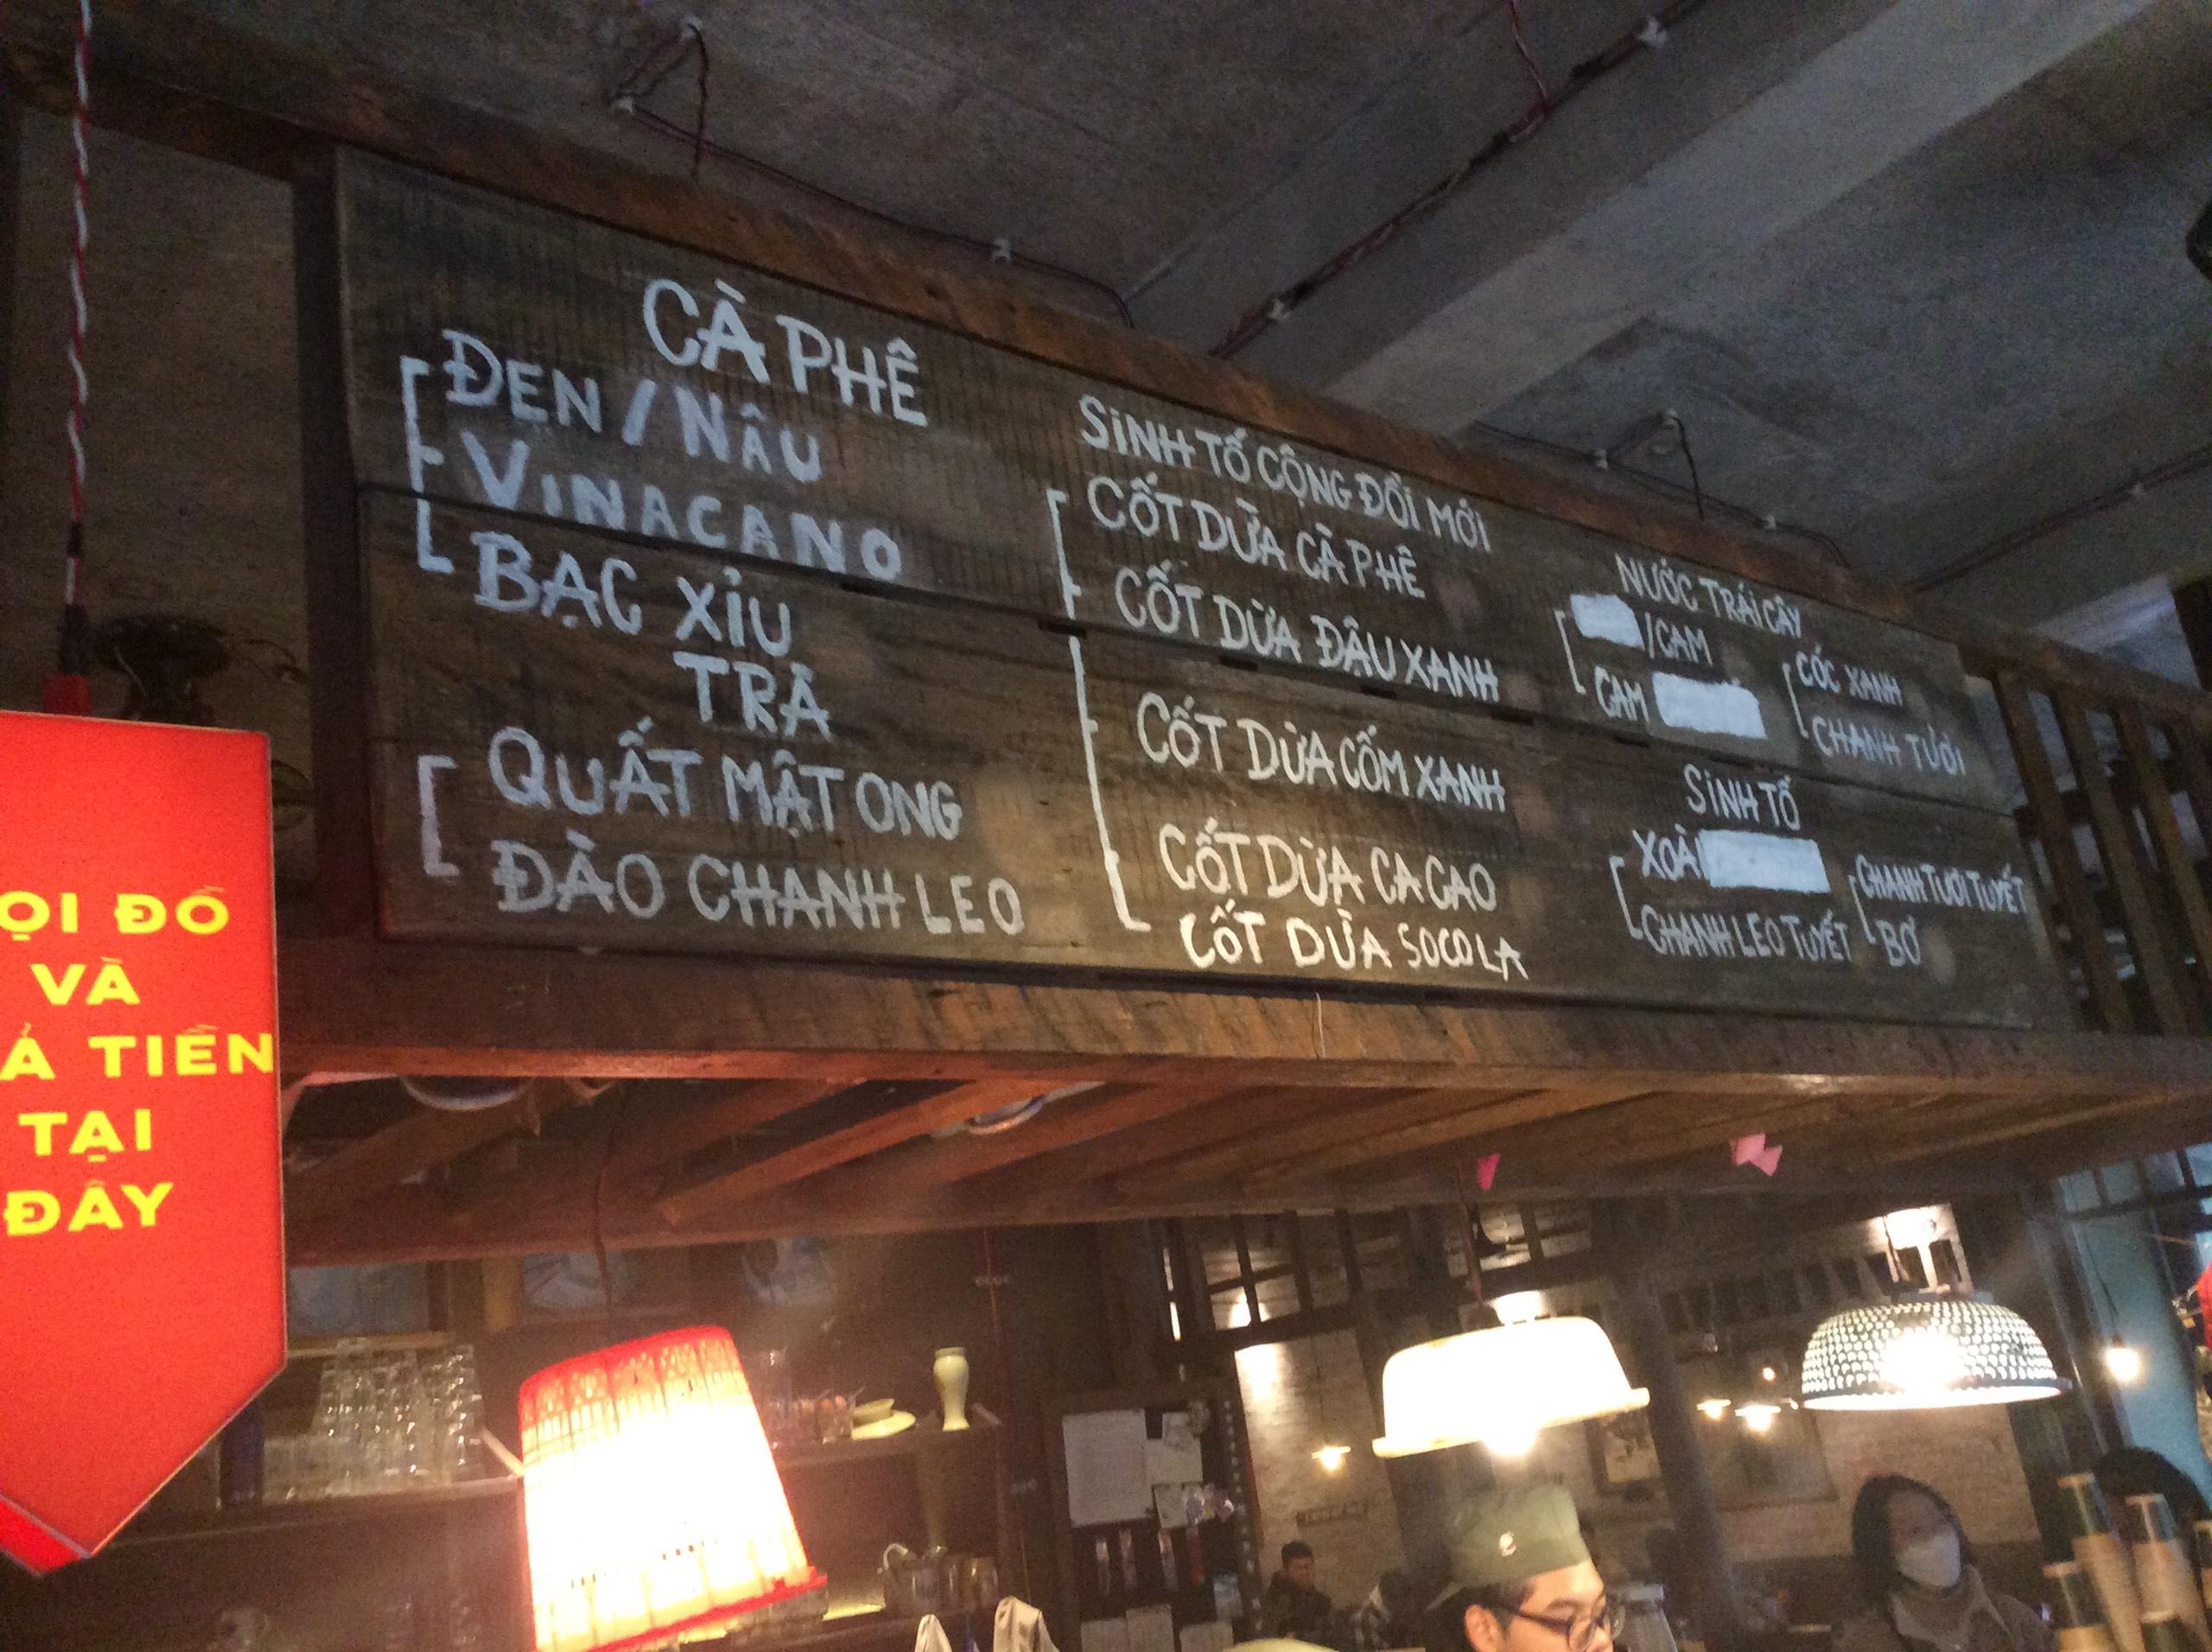 CÀ PHÊ
ĐEN / NÂU
VINACANO
BẠC XỈU
TRÀ
QUẤT MẬT ONG
ĐÀO CHANH LEO
SINH TỐ CỘNG ĐỔI MỚI
CỐT DỪA CÀ PHÊ
CỐT DỪA ĐẬU XANH
CỐT DỪA CỐM XANH
CỐT DỪA CA CAO
CỐT DỪA SOCOLA
NƯỚC TRÁI CÂY
/CAM
CAM
CÓC XANH
CHANH TƯƠI
SINH TỐ
XOÀI
CHANH LEO TUYẾT
CHANH TƯƠI TUYẾT
BƠ
ỌI ĐỒ
VÀ
Ả TIỀN
TẠI
ĐÂY